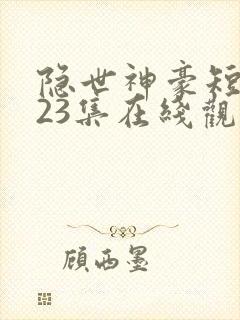 隐世神豪短
23集在綫觀
顾西墨